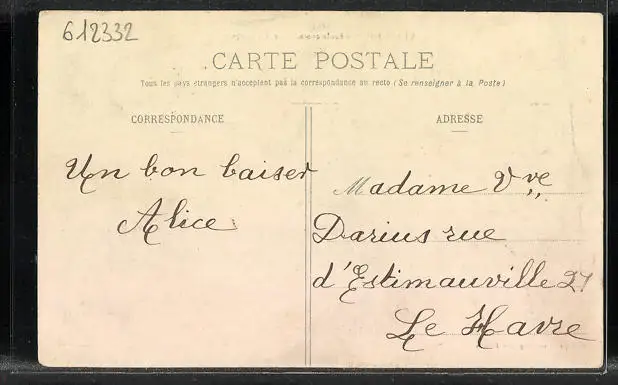 612332
CARTE POSTALE
Tous les pays étrangers n'acceptent pas la correspondance au recto (Se renseigner à la Poste)
CORRESPONDANCE
ADRESSE
Un bon baiser
Alice
Madame Vve
Darius rue
d'Estimauville 27
Le Havre